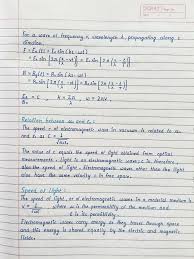 For a wave of frequency ν, wavelength λ, propagating along z
direction.
E = Ex(t) = E0 sin (kz - ωt)
= E0 sin [2π (z/λ - νt)] = E0 sin [2π (z/λ - t/T)]
B = By(t) = B0 sin (kz - ωt)
= B0 sin [2π (z/λ - νt)] = B0 sin [2π (z/λ - t/T)]
E0/B0 = c, k = 2π/λ, ω = 2πν.
Relation between μ0 and ε0:
The speed c of electromagnetic wave in vacuum is related to μ0
and ε0 as c = 1/√μ0ε0
The value of c equals the speed of light obtained from optical
measurements. Light is an electromagnetic wave; c is therefore,
also the speed of light. Electromagnetic waves other than the light
also have the same velocity c in free space.
Speed of light:
The speed of light, or of electromagnetic waves in a material medium is
v = 1/√με where μ is the permeability of the medium and
ε is its permittivity.
Electromagnetic waves carry energy as they travel through space
and this energy is shared equally by the electric and magnetic
fields.